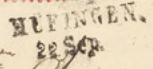 HÜFINGEN.
22 Sep.